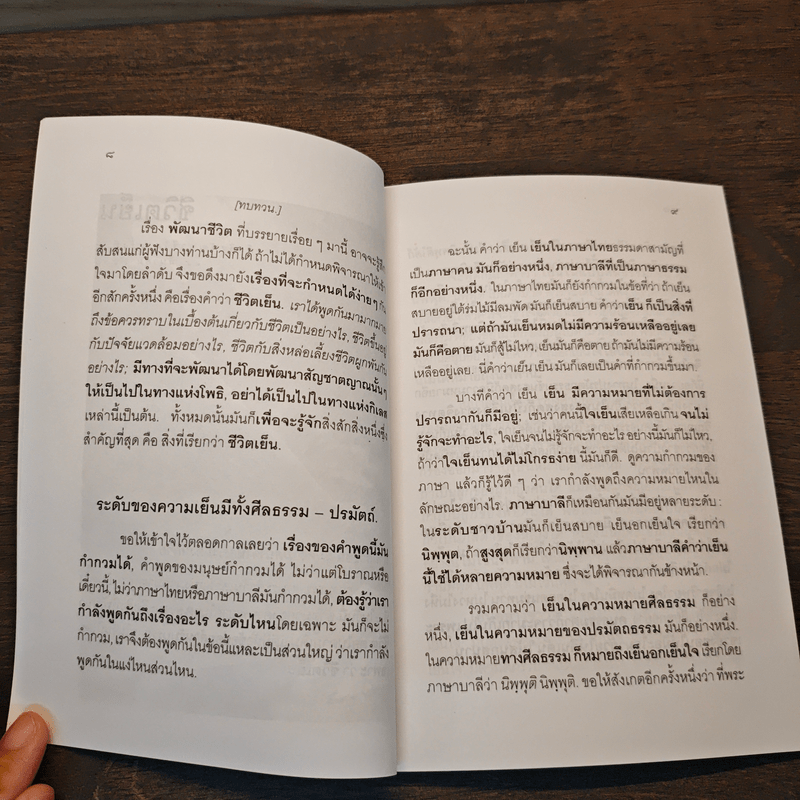 ๘
[ทบทวน.]
เรื่อง พัฒนาชีวิต ที่บรรยายเรื่อย ๆ มานี้ อาจจะรู้สึก
สับสนแก่ผู้ฟังบางท่านบ้างก็ได้ ถ้าไม่ได้กำหนดพิจารณาให้เข้า
ใจมาโดยลำดับ จึงขอดึงมายังเรื่องที่จะกำหนดได้ง่ายๆ กัน
อีกสักครั้งหนึ่ง คือเรื่องคำว่า ชีวิตเย็น. เราได้พูดกันมามากมาย
ถึงข้อควรทราบในเบื้องต้นเกี่ยวกับชีวิตเป็นอย่างไร, ชีวิตขึ้นอยู่
กับปัจจัยแวดล้อมอย่างไร, ชีวิตกับสิ่งหล่อเลี้ยงชีวิตผูกพันกัน
อย่างไร; มีทางที่จะพัฒนาได้โดยพัฒนาสัญชาตญาณนั้นๆ
ให้เป็นไปในทางแห่งโพธิ, อย่าได้เป็นไปในทางแห่งกิเลส
เหล่านี้เป็นต้น. ทั้งหมดนั้นมันก็เพื่อจะรู้จักสิ่งสักสิ่งหนึ่งซึ่ง
สำคัญที่สุด คือ สิ่งที่เรียกว่า ชีวิตเย็น.
ระดับของความเย็นมีทั้งศีลธรรม – ปรมัตถ์.
ขอให้เข้าใจไว้ตลอดกาลเลยว่า เรื่องของคำพูดนี้มัน
กำกวมได้, คำพูดของมนุษย์กำกวมได้ ไม่ว่าแต่โบราณหรือ
เดี๋ยวนี้, ไม่ว่าภาษาไทยหรือภาษาบาลีมันกำกวมได้, ต้องรู้ว่าเรา
กำลังพูดกันถึงเรื่องอะไร ระดับไหนโดยเฉพาะ มันก็จะไม่
กำกวม, เราจึงต้องพูดกันในข้อนี้แหละเป็นส่วนใหญ่ ว่าเรากำลัง
พูดกันในแง่ไหนส่วนไหน.
๙
ฉะนั้น คำว่า เย็น เย็นในภาษาไทยธรรมดาสามัญที่
เป็นภาษาคน มันก็อย่างหนึ่ง, ภาษาบาลีที่เป็นภาษาธรรม
ก็อีกอย่างหนึ่ง. ในภาษาไทยมันก็ยังกำกวมในข้อที่ว่า ถ้าเย็น
สบายอยู่ใต้ร่มไม้มีลมพัด มันก็เย็นสบาย คำว่า เย็น ก็เป็นสิ่งที่
ปรารถนา; แต่ถ้ามันเย็นหมดไม่มีความร้อนเหลืออยู่เลย
มันก็คือตาย มันก็สู้ไม่ไหว, เย็นมันก็คือตาย ถ้ามันไม่มีความร้อน
เหลืออยู่เลย. นี่คำว่าเย็น เย็น มันก็เลยเป็นคำที่กำกวมขึ้นมา.
บางทีคำว่า เย็น เย็น มีความหมายที่ไม่ต้องการ
ปรารถนากันก็มีอยู่; เช่นว่าคนนี้ใจเย็นเสียเหลือเกิน จนไม่
รู้จักจะทำอะไร, ใจเย็นจนไม่รู้จักจะทำอะไร อย่างนี้มันก็ไม่ไหว,
ถ้าว่าใจเย็นทนได้ไม่โกรธง่าย นี้มันก็ดี. ดูความกำกวมของ
ภาษา แล้วก็รู้ไว้ดี ๆ ว่า เรากำลังพูดถึงความหมายไหนใน
ลักษณะอย่างไร. ภาษาบาลีก็เหมือนกันมันมีอยู่หลายระดับ :
ในระดับชาวบ้านมันก็เย็นสบาย เย็นอกเย็นใจ เรียกว่า
นิพฺพุต, ถ้าสูงสุดก็เรียกว่านิพพาน แล้วภาษาบาลีคำว่าเย็น
นี้ใช้ได้หลายความหมาย ซึ่งจะได้พิจารณากันข้างหน้า.
รวมความว่า เย็นในความหมายศีลธรรม ก็อย่าง
หนึ่ง, เย็นในความหมายของปรมัตถธรรม มันก็อย่างหนึ่ง.
ในความหมายทางศีลธรรม ก็หมายถึงเย็นอกเย็นใจ เรียกโดย
ภาษาบาลีว่า นิพฺพุติ นิพฺพุติ. ขอให้สังเกตอีกครั้งหนึ่งว่า ที่พระ